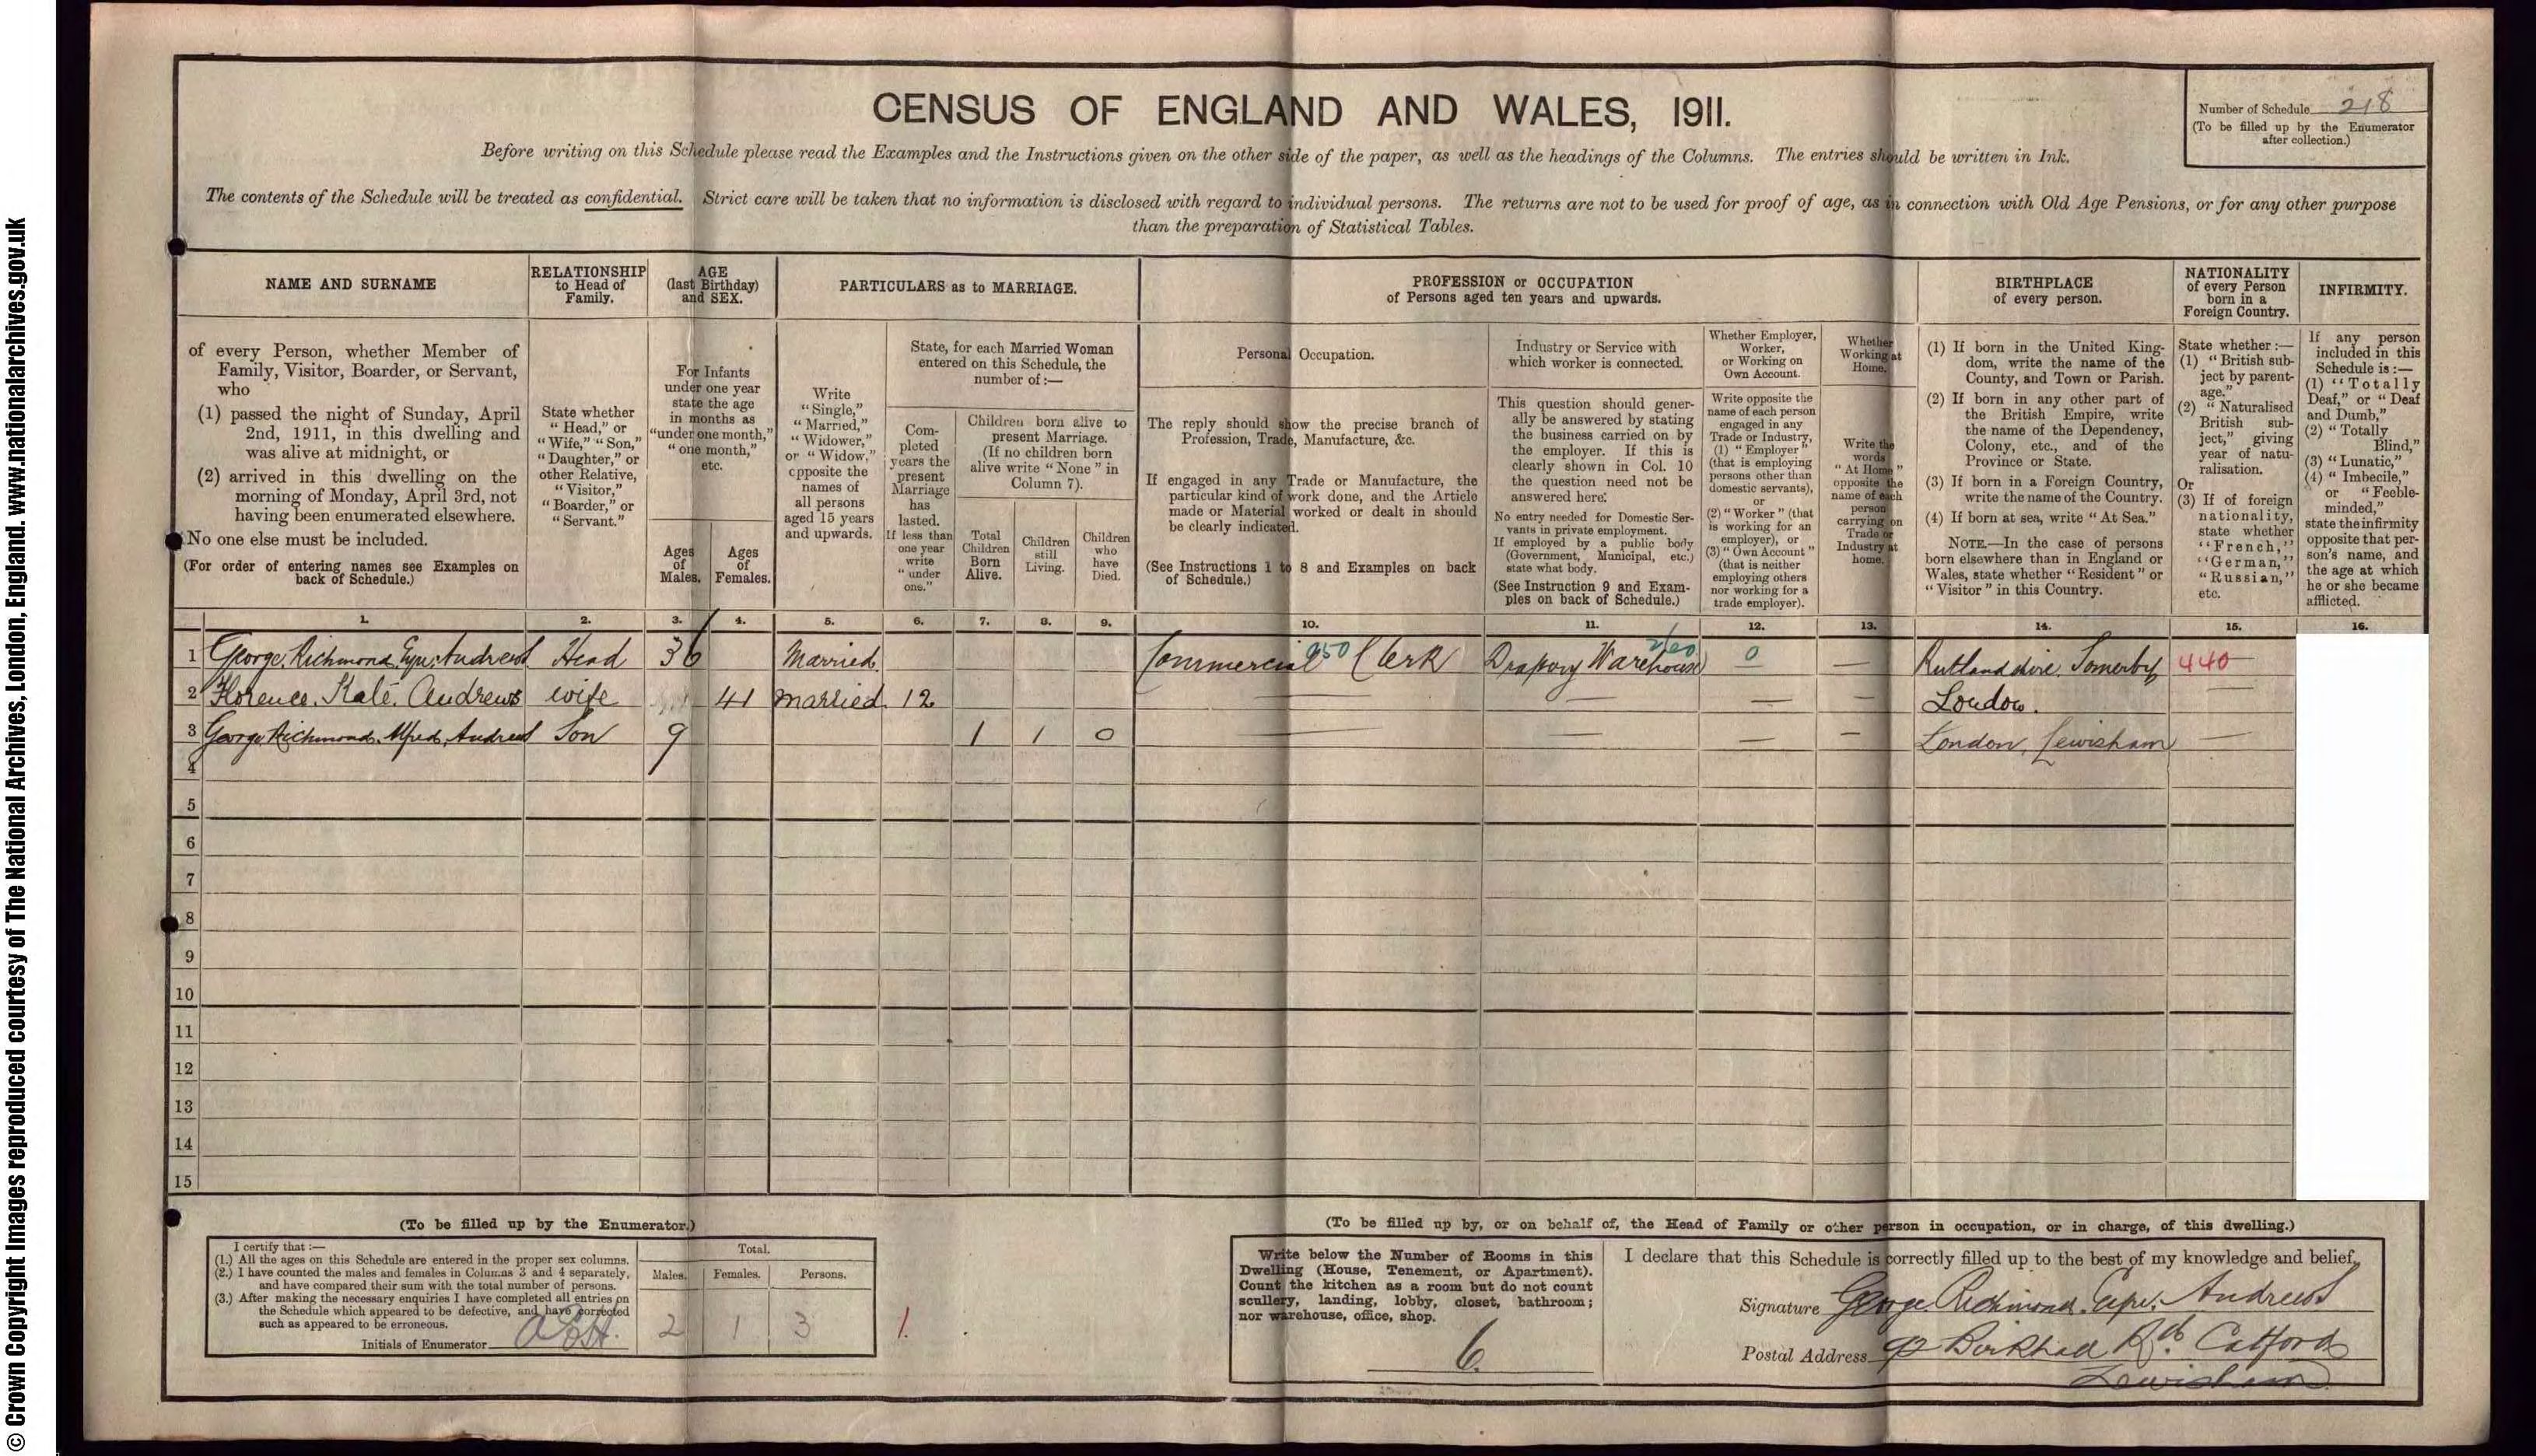 © Crown Copyright Images reproduced courtesy of The National Archives, London, England. www.nationalarchives.gov.uk
CENSUS OF ENGLAND AND WALES, 1911.
Number of Schedule 218
(To be filled up by the Enumerator
after collection.)
Before writing on this Schedule please read the Examples and the Instructions given on the other side of the paper, as well as the headings of the Columns. The entries should be written in Ink.
The contents of the Schedule will be treated as confidential. Strict care will be taken that no information is disclosed with regard to individual persons. The returns are not to be used for proof of age, as in connection with Old Age Pensions, or for any other purpose
than the preparation of Statistical Tables.
NAME AND SURNAME
of every Person, whether Member of
Family, Visitor, Boarder, or Servant,
who
(1) passed the night of Sunday, April
2nd, 1911, in this dwelling and
was alive at midnight, or
(2) arrived in this dwelling on the
morning of Monday, April 3rd, not
having been enumerated elsewhere.
No one else must be included.
(For order of entering names see Examples on
back of Schedule.)
RELATIONSHIP
to Head of
Family.
State whether
"Head," or
"Wife," "Son,"
"Daughter," or
other Relative,
"Visitor,"
"Boarder," or
"Servant."
AGE
(last Birthday)
and SEX.
For Infants
under one year
state the age
in months as
"under one month,"
"one month,"
etc.
Ages
of
Males.
Ages
of
Females.
PARTICULARS as to MARRIAGE.
Write
"Single,"
"Married,"
"Widower,"
or "Widow,"
opposite the
names of
all persons
aged 15 years
and upwards.
State, for each Married Woman
entered on this Schedule, the
number of:—
Com-
pleted
years the
present
Marriage
has
lasted.
If less than
one year
write
"under
one."
Children born alive to
present Marriage.
(If no children born
alive write "None" in
Column 7).
Total
Children
Born
Alive.
Children
still
Living.
Children
who
have
Died.
PROFESSION or OCCUPATION
of Persons aged ten years and upwards.
Personal Occupation.
The reply should show the precise branch of
Profession, Trade, Manufacture, &c.
If engaged in any Trade or Manufacture, the
particular kind of work done, and the Article
made or Material worked or dealt in should
be clearly indicated.
(See Instructions 1 to 8 and Examples on back
of Schedule.)
Industry or Service with
which worker is connected.
This question should gener-
ally be answered by stating
the business carried on by
the employer. If this is
clearly shown in Col. 10
the question need not be
answered here.
No entry needed for Domestic Ser-
vants in private employment.
If employed by a public body
(Government, Municipal, etc.)
state what body.
(See Instruction 9 and Exam-
ples on back of Schedule.)
Whether Employer,
Worker,
or Working on
Own Account.
Write opposite the
name of each person
engaged in any
Trade or Industry,
(1) "Employer"
(that is employing
persons other than
domestic servants),
or
(2) "Worker" (that
is working for an
employer), or
(3) "Own Account"
(that is neither
employing others
nor working for a
trade employer).
Whether
Working at
Home.
Write the
words
"At Home"
opposite the
name of each
person
carrying on
Trade or
Industry at
home.
BIRTHPLACE
of every person.
(1) If born in the United King-
dom, write the name of the
County, and Town or Parish.
(2) If born in any other part of
the British Empire, write
the name of the Dependency,
Colony, etc., and of the
Province or State.
(3) If born in a Foreign Country,
write the name of the Country.
(4) If born at sea, write "At Sea."
NOTE.—In the case of persons
born elsewhere than in England or
Wales, state whether "Resident" or
"Visitor" in this Country.
NATIONALITY
of every Person
born in a
Foreign Country.
State whether:—
(1) "British sub-
ject by parent-
age."
(2) "Naturalised
British sub-
ject," giving
year of natu-
ralisation.
Or
(3) If of foreign
nationality,
state whether
"French,"
"German,"
"Russian,"
etc.
INFIRMITY.
If any person
included in this
Schedule is:—
(1) "Totally
Deaf," or "Deaf
and Dumb,"
(2) "Totally
Blind,"
(3) "Lunatic,"
(4) "Imbecile,"
or "Feeble-
minded,"
state the infirmity
opposite that per-
son's name, and
the age at which
he or she became
afflicted.
1. 2. 3. 4. 5. 6. 7. 8. 9. 10. 11. 12. 13. 14. 15. 16.
1 George Richmond Andrews Head 36 Married Commercial 950 Clerk Drapery Warehouse 0 — Rutlandshire Somerby 440
2 Florence Kate Andrews wife 41 married 12 — — — — London. —
3 George Richmond Alfred Andrews Son 9 1 1 0 — — — — London, Lewisham —
4
5
6
7
8
9
10
11
12
13
14
15
(To be filled up by the Enumerator.)
I certify that:—
(1.) All the ages on this Schedule are entered in the proper sex columns.
(2.) I have counted the males and females in Columns 3 and 4 separately,
and have compared their sum with the total number of persons.
(3.) After making the necessary enquiries I have completed all entries on
the Schedule which appeared to be defective, and have corrected
such as appeared to be erroneous.
Initials of Enumerator
Total.
Males. Females. Persons.
2 1 3
1.
(To be filled up by, or on behalf of, the Head of Family or other person in occupation, or in charge, of this dwelling.)
Write below the Number of Rooms in this
Dwelling (House, Tenement, or Apartment).
Count the kitchen as a room but do not count
scullery, landing, lobby, closet, bathroom;
nor warehouse, office, shop.
6.
I declare that this Schedule is correctly filled up to the best of my knowledge and belief.
Signature George Richmond Andrews
Postal Address Birkhall Rd. Catford
Lewisham